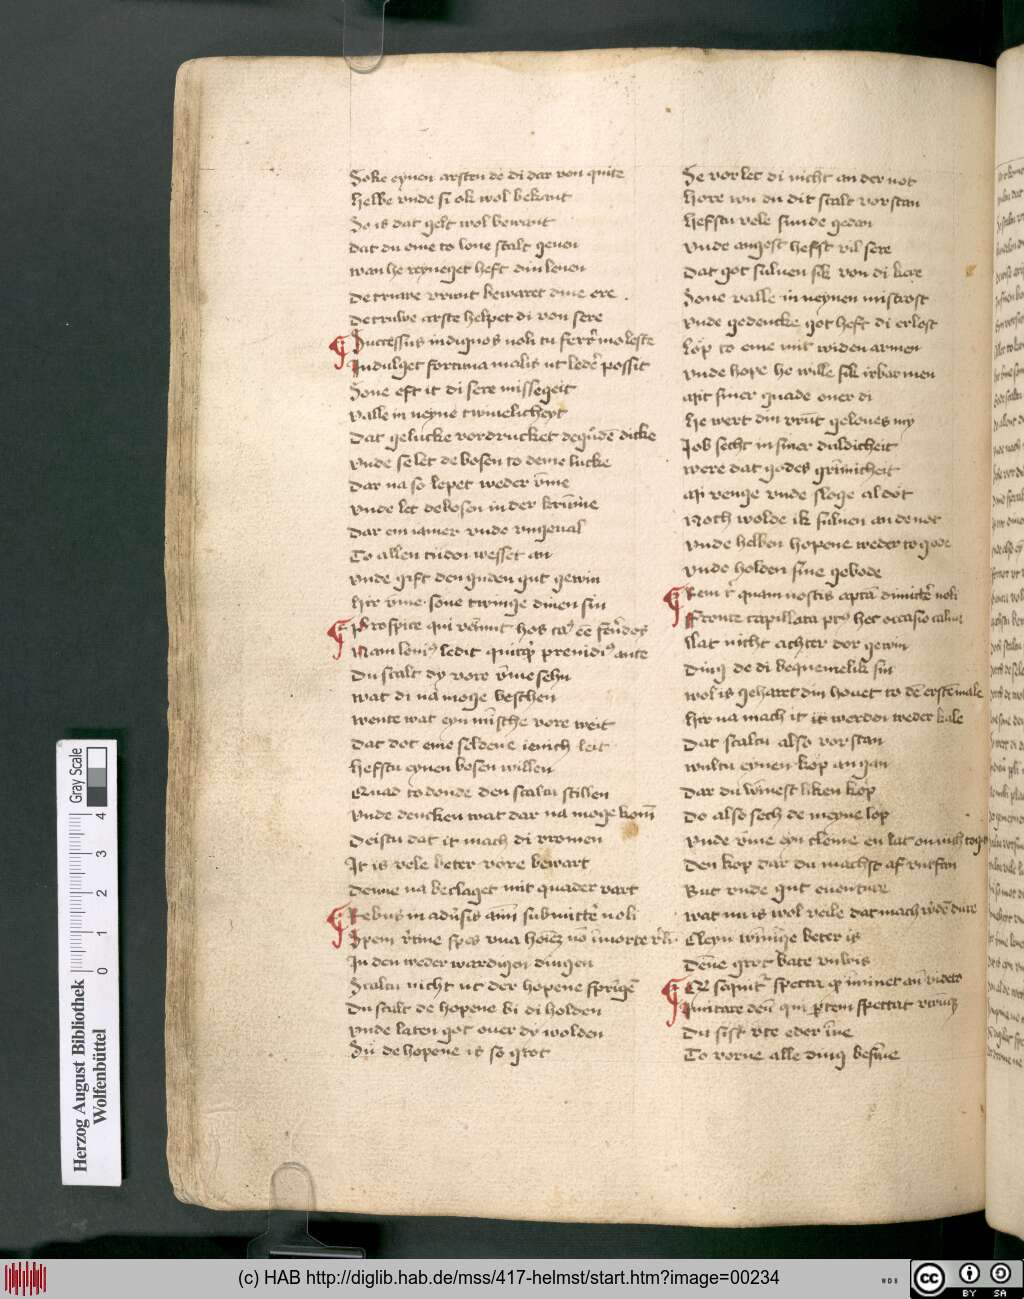 Soke eynen arsten de di dar von quite
Helbe vnde si ok wol bekant
So is dat gelt wol bewant
Dat du eme to lone scalt geuen
wan he heft din leuen
De truwe vrunt bewaret dine ere
De truwe arste helpet di von sere
Successus indignos noli tu ferr̄ moleste
Indulget fortuna malis ut ledē possit
Sone eft it di sere missegeit
valle in neyne twiuelicheyt
Dat gelucke vordrucket de gūdē dicke
vnde set de bosen to deme lucke
Dar na so lepet weder v̄me
vnde let de bosen in der krūme
Dar ein iamer vnde vngeual
To allen tiiden wesset an
vnde gift den guden gut gewin
Hir v̄me sone twinge dinen sin
Prospice qui veniūt hos cā eē ferēdos
Nam leui⁹ ledit quitqͥd preuidi⁹ ante
Du scalt dy vore v̄me sehn
wat di na moge beschen
wente wat eyn mīsche vore weit
Dat dot eme seldene ienich leit
Hefstu eynen bosen willen
Quad to donde den scaltu stillen
vnde dencken wat dar na moge komē
Deistu dat it mach di vromen
It is vele beter vore bewart
Denne na beclaget mit quader vart
Rebus in adūsis aīm submittē noli
Spem rētine spes vna hoīēz nō morte rēlī
In den wederwardigen dingen
Scaltu nicht ut der hopene sprīgē
Du scalt de hopene bi di holden
vnde laten got ouer dy wolden
Sū de hopene is so grot
Se vorlet di nicht an der not
Hore wu du dit scalt vorstan
Hefstu vele sunde gedan
vnde angest hefst vil sere
Dat got suluen sik von di kere
Sone valle in neynen mistrost
vnde gedencke got heft di erlost
Lop to eme mit widen armen
vnde hope he wille sik irbarmen
Mit siner quade ouer di
He wert din vrūt geloues my
Job secht in siner duldicheit
were dat godes grīmicheit
Mi venge vnde sloge al dot
Noch wolde ik suluen an de not
vnde hebben hopene weder to gode
vnde holden sine gebode
Rem t̄ quam nostis aptā dimittē noli
Fronte capillata pꝰ hec occasio calua
Lat nicht achter der gewin
Ding de di bequemelik sin
wol is geharet din houet to dē erstē male
Hir na mach it it werden weder kale
Dat scaltu also vorstan
wultu eynen kop an gan
Dar du winest liken kop
Do also sech de meyne lop
vnde v̄me eyn cleine en lat on nich toge
Den kop dar du machst af vorsten
Rut vnde gut euenture
wat nu is wol veile dat mach wdē dure
Cleyn wininge beter is
Dēne grot bate vnwis
Qd sequitͬ specta qͥ iminet an videto
Imitare deū qui ꝑtem spectat vtrāqꝫ
Du sist vte eder īne
To vorne alle ding besīne
Herzog August Bibliothek
Wolfenbüttel
Gray Scale
0 1 2 3 4
(c) HAB http://diglib.hab.de/mss/417-helmst/start.htm?image=00234
WDB
cc BY SA